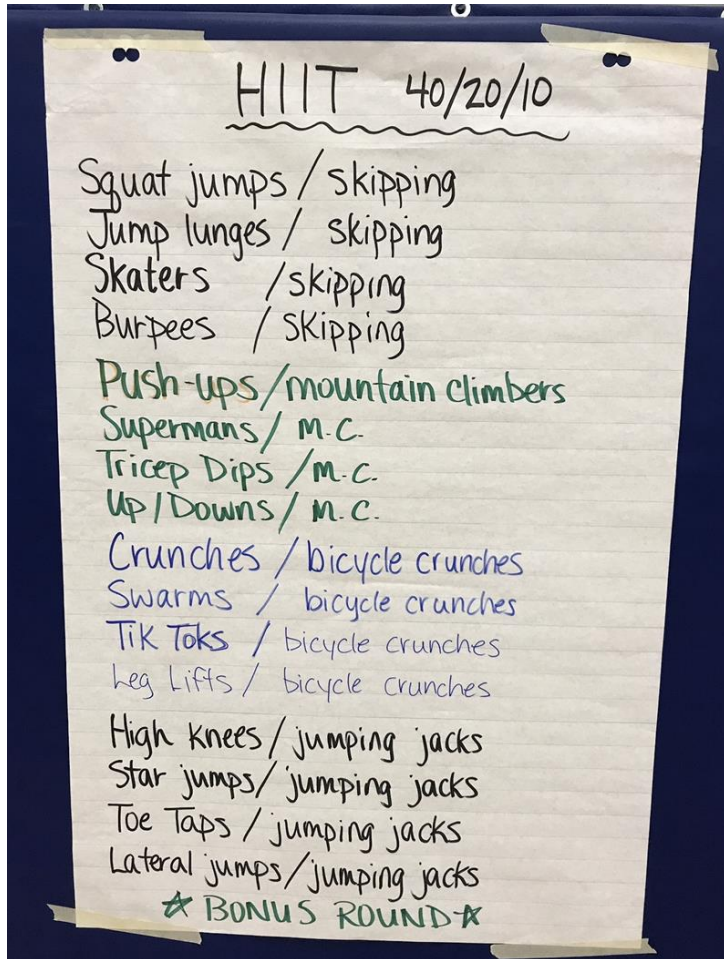 HIIT 40/20/10
Squat jumps / skipping
Jump lunges / skipping
Skaters / skipping
Burpees / skipping
Push-ups/mountain climbers
Supermans/ M.C.
Tricep Dips /M.C.
Up/Downs/ M.C.
Crunches / bicycle crunches
Swarms / bicycle crunches
Tik Toks / bicycle crunches
Leg Lifts / bicycle crunches
High knees/ jumping jacks
Star jumps/ jumping jacks
Toe Taps / jumping jacks
Lateral jumps/jumping jacks
☆ BONUS ROUND ☆